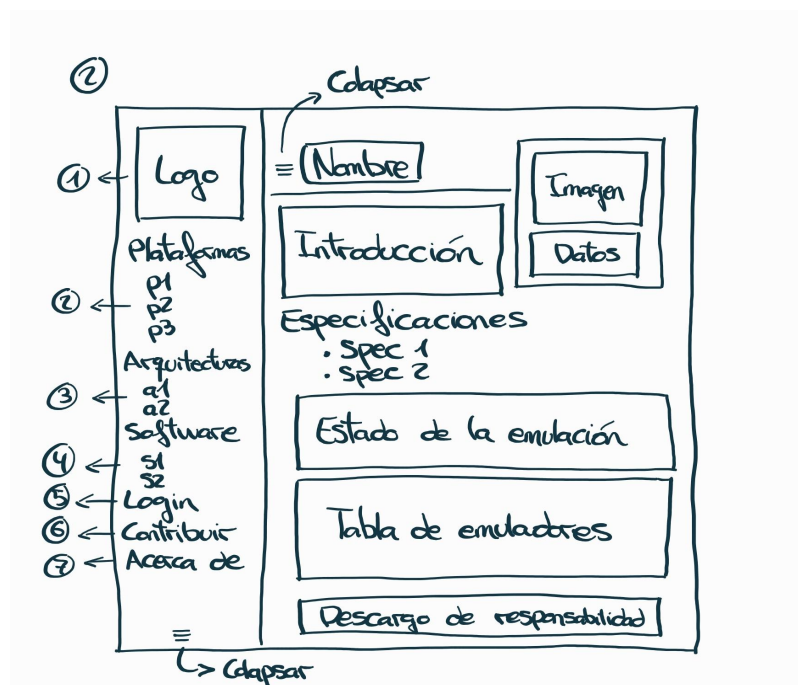 2
Colapsar
1
Logo
Plataformas
p1
2
p2
p3
Arquitecturas
3
a1
a2
Software
4
s1
s2
5
Login
6
Contribuir
7
Acerca de
Colapsar
Nombre
Imagen
Datos
Introducción
Especificaciones
· Spec 1
· Spec 2
Estado de la emulación
Tabla de emuladores
Descargo de responsabilidad